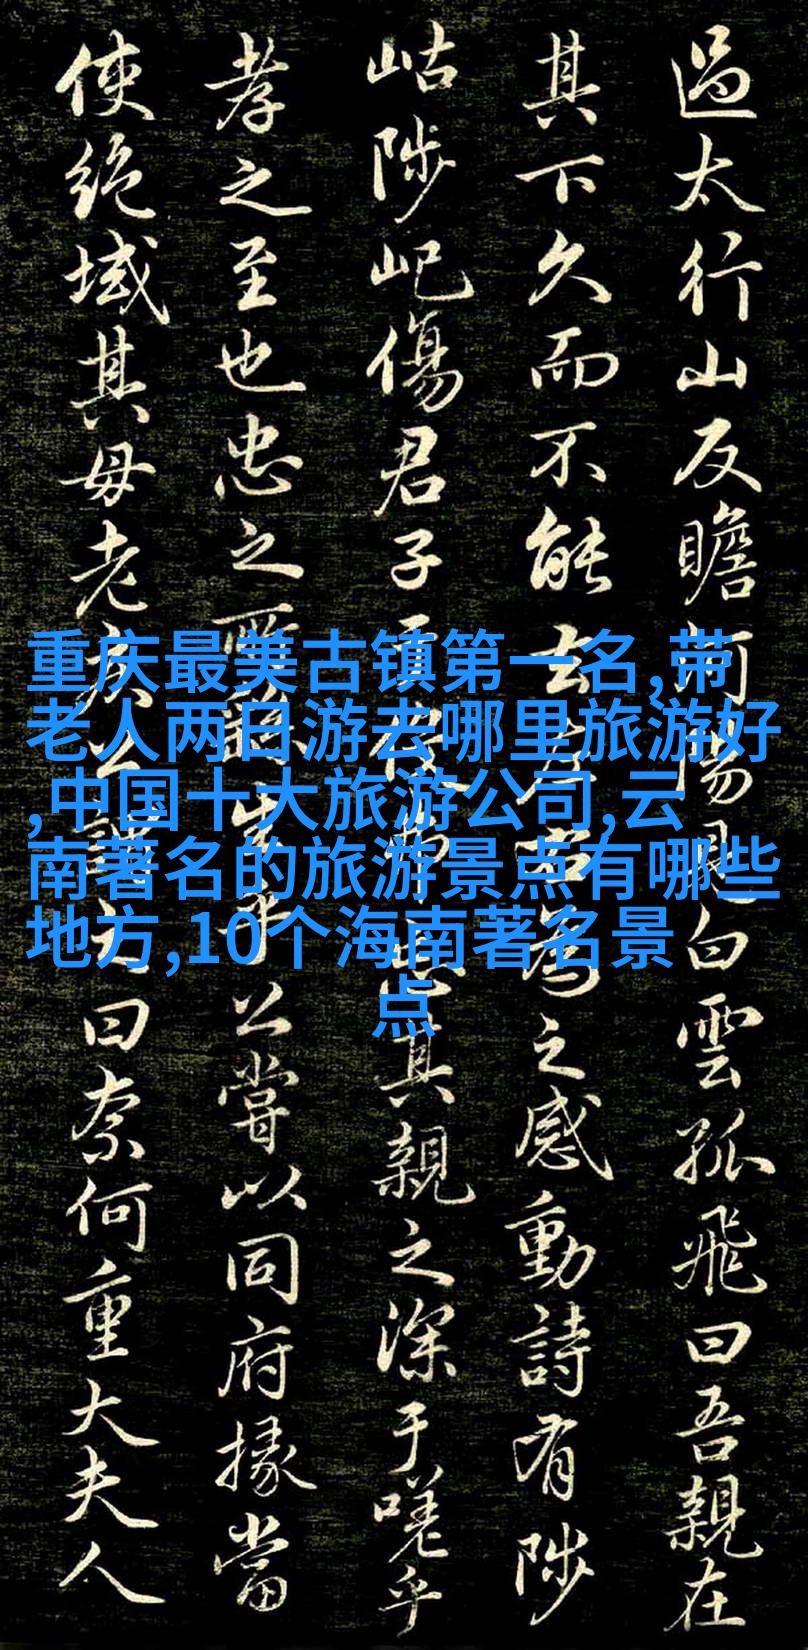 過太行山反瞻河陽見白雲孤飛曰吾親在
其下久而不能去為之感動詩有陟
岵陟屺傷君子其親之深于嗟乎
孝之至也忠之所生乎公嘗以同府掾當
使絕域其母老疾公謂之曰奈何重大夫人
重庆最美古镇第一名,带
老人两日游去哪里旅游好
,中国十大旅游公司,云
南著名的旅游景点有哪些
地方,10个海南著名景
点